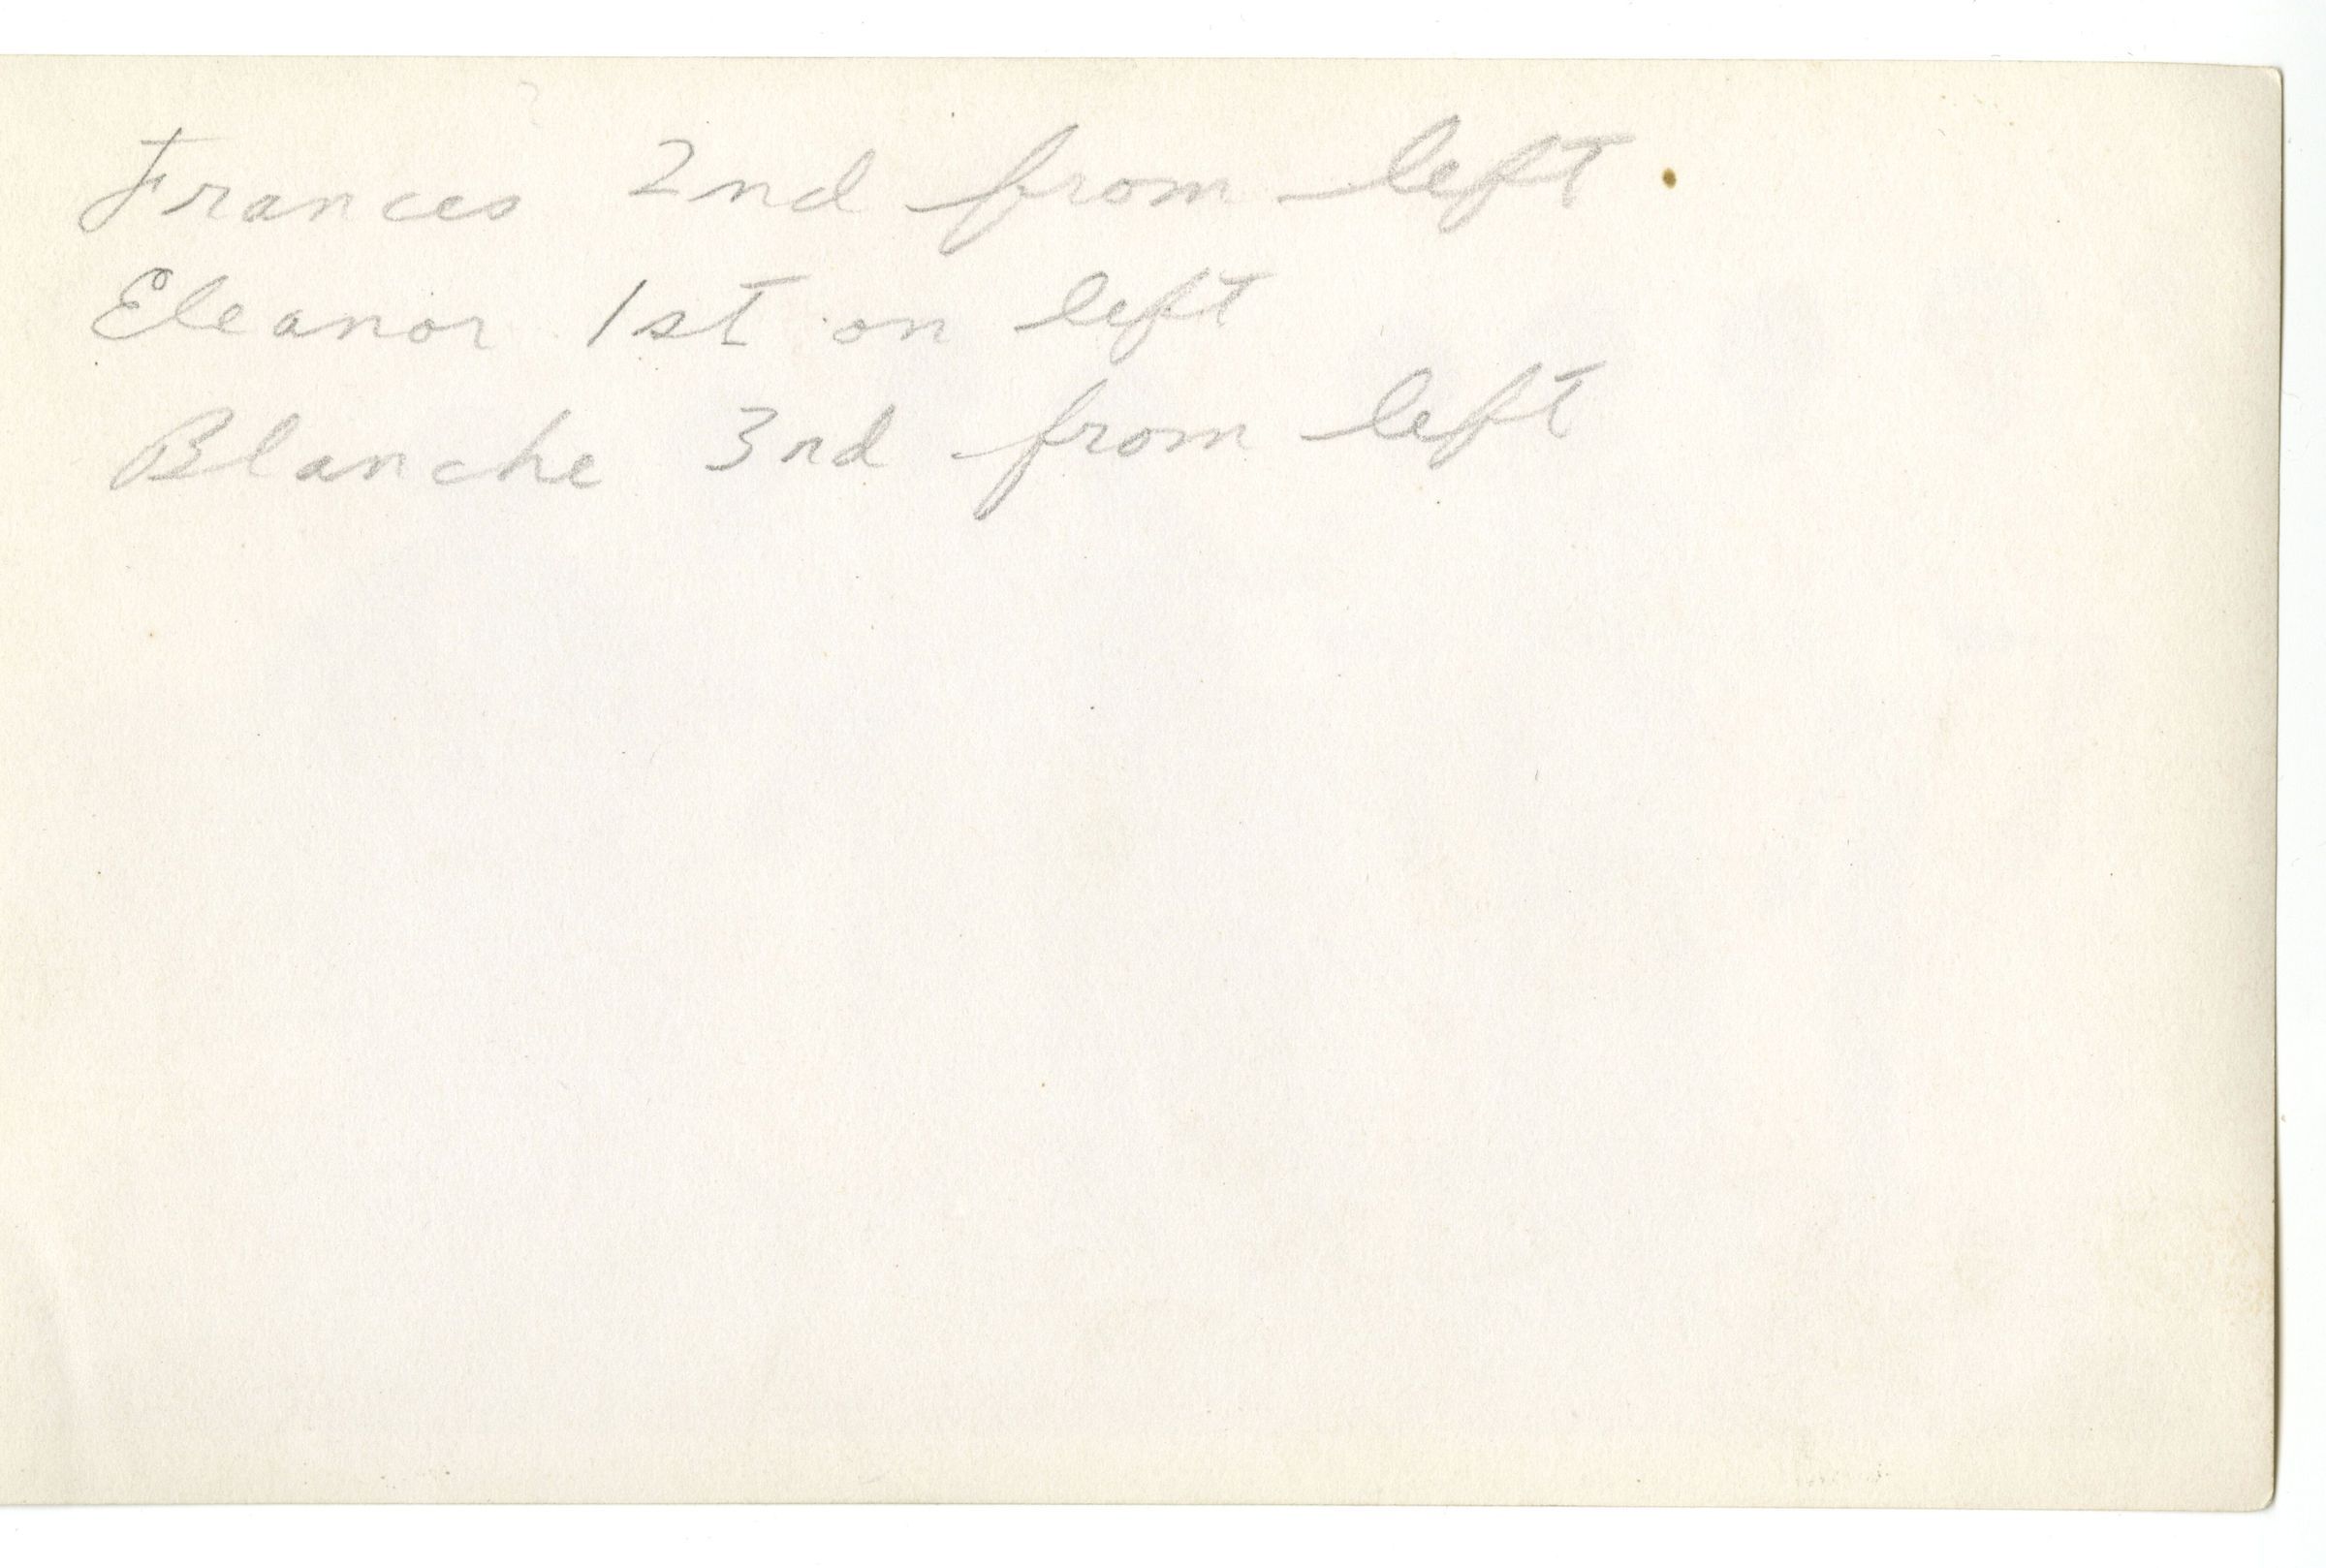 Frances 2nd from left
Eleanor 1st on left
Blanche 3rd from left